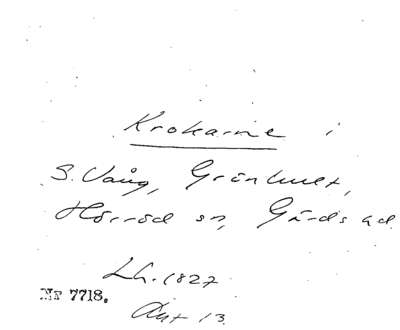 Krokarne i
S. Vång, Grönhult,
Hörröd sn, Gärds hd.
Lh. 1827
Nr 7718.
Akt 13.